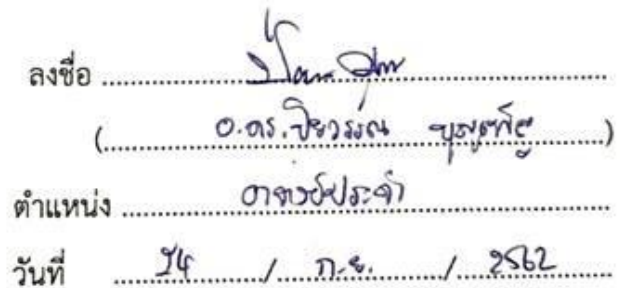 ลงชื่อ
(อ.ดร.ปิยวรรณ)
ตำแหน่ง อาจารย์ประจำ
วันที่ 24 / ก.ย. / 2562